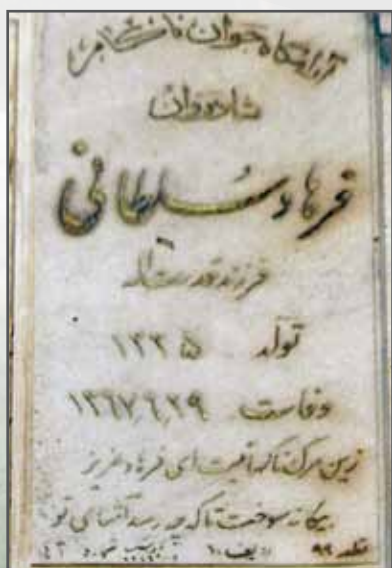 آرامگاه جوان ناکام
شادروان
فرهاد سلطانی
فرزند قدرت اله
تولد ۱۳۳۵
وفات ۱۳۶۷٫۶٫۲۹
زین مرگ ناگهانیت ای فرهاد عزیز
بیگانه سوخت تا که چه رسد آشنای تو
قطعه ۹۹ ردیف ۱۰ شماره